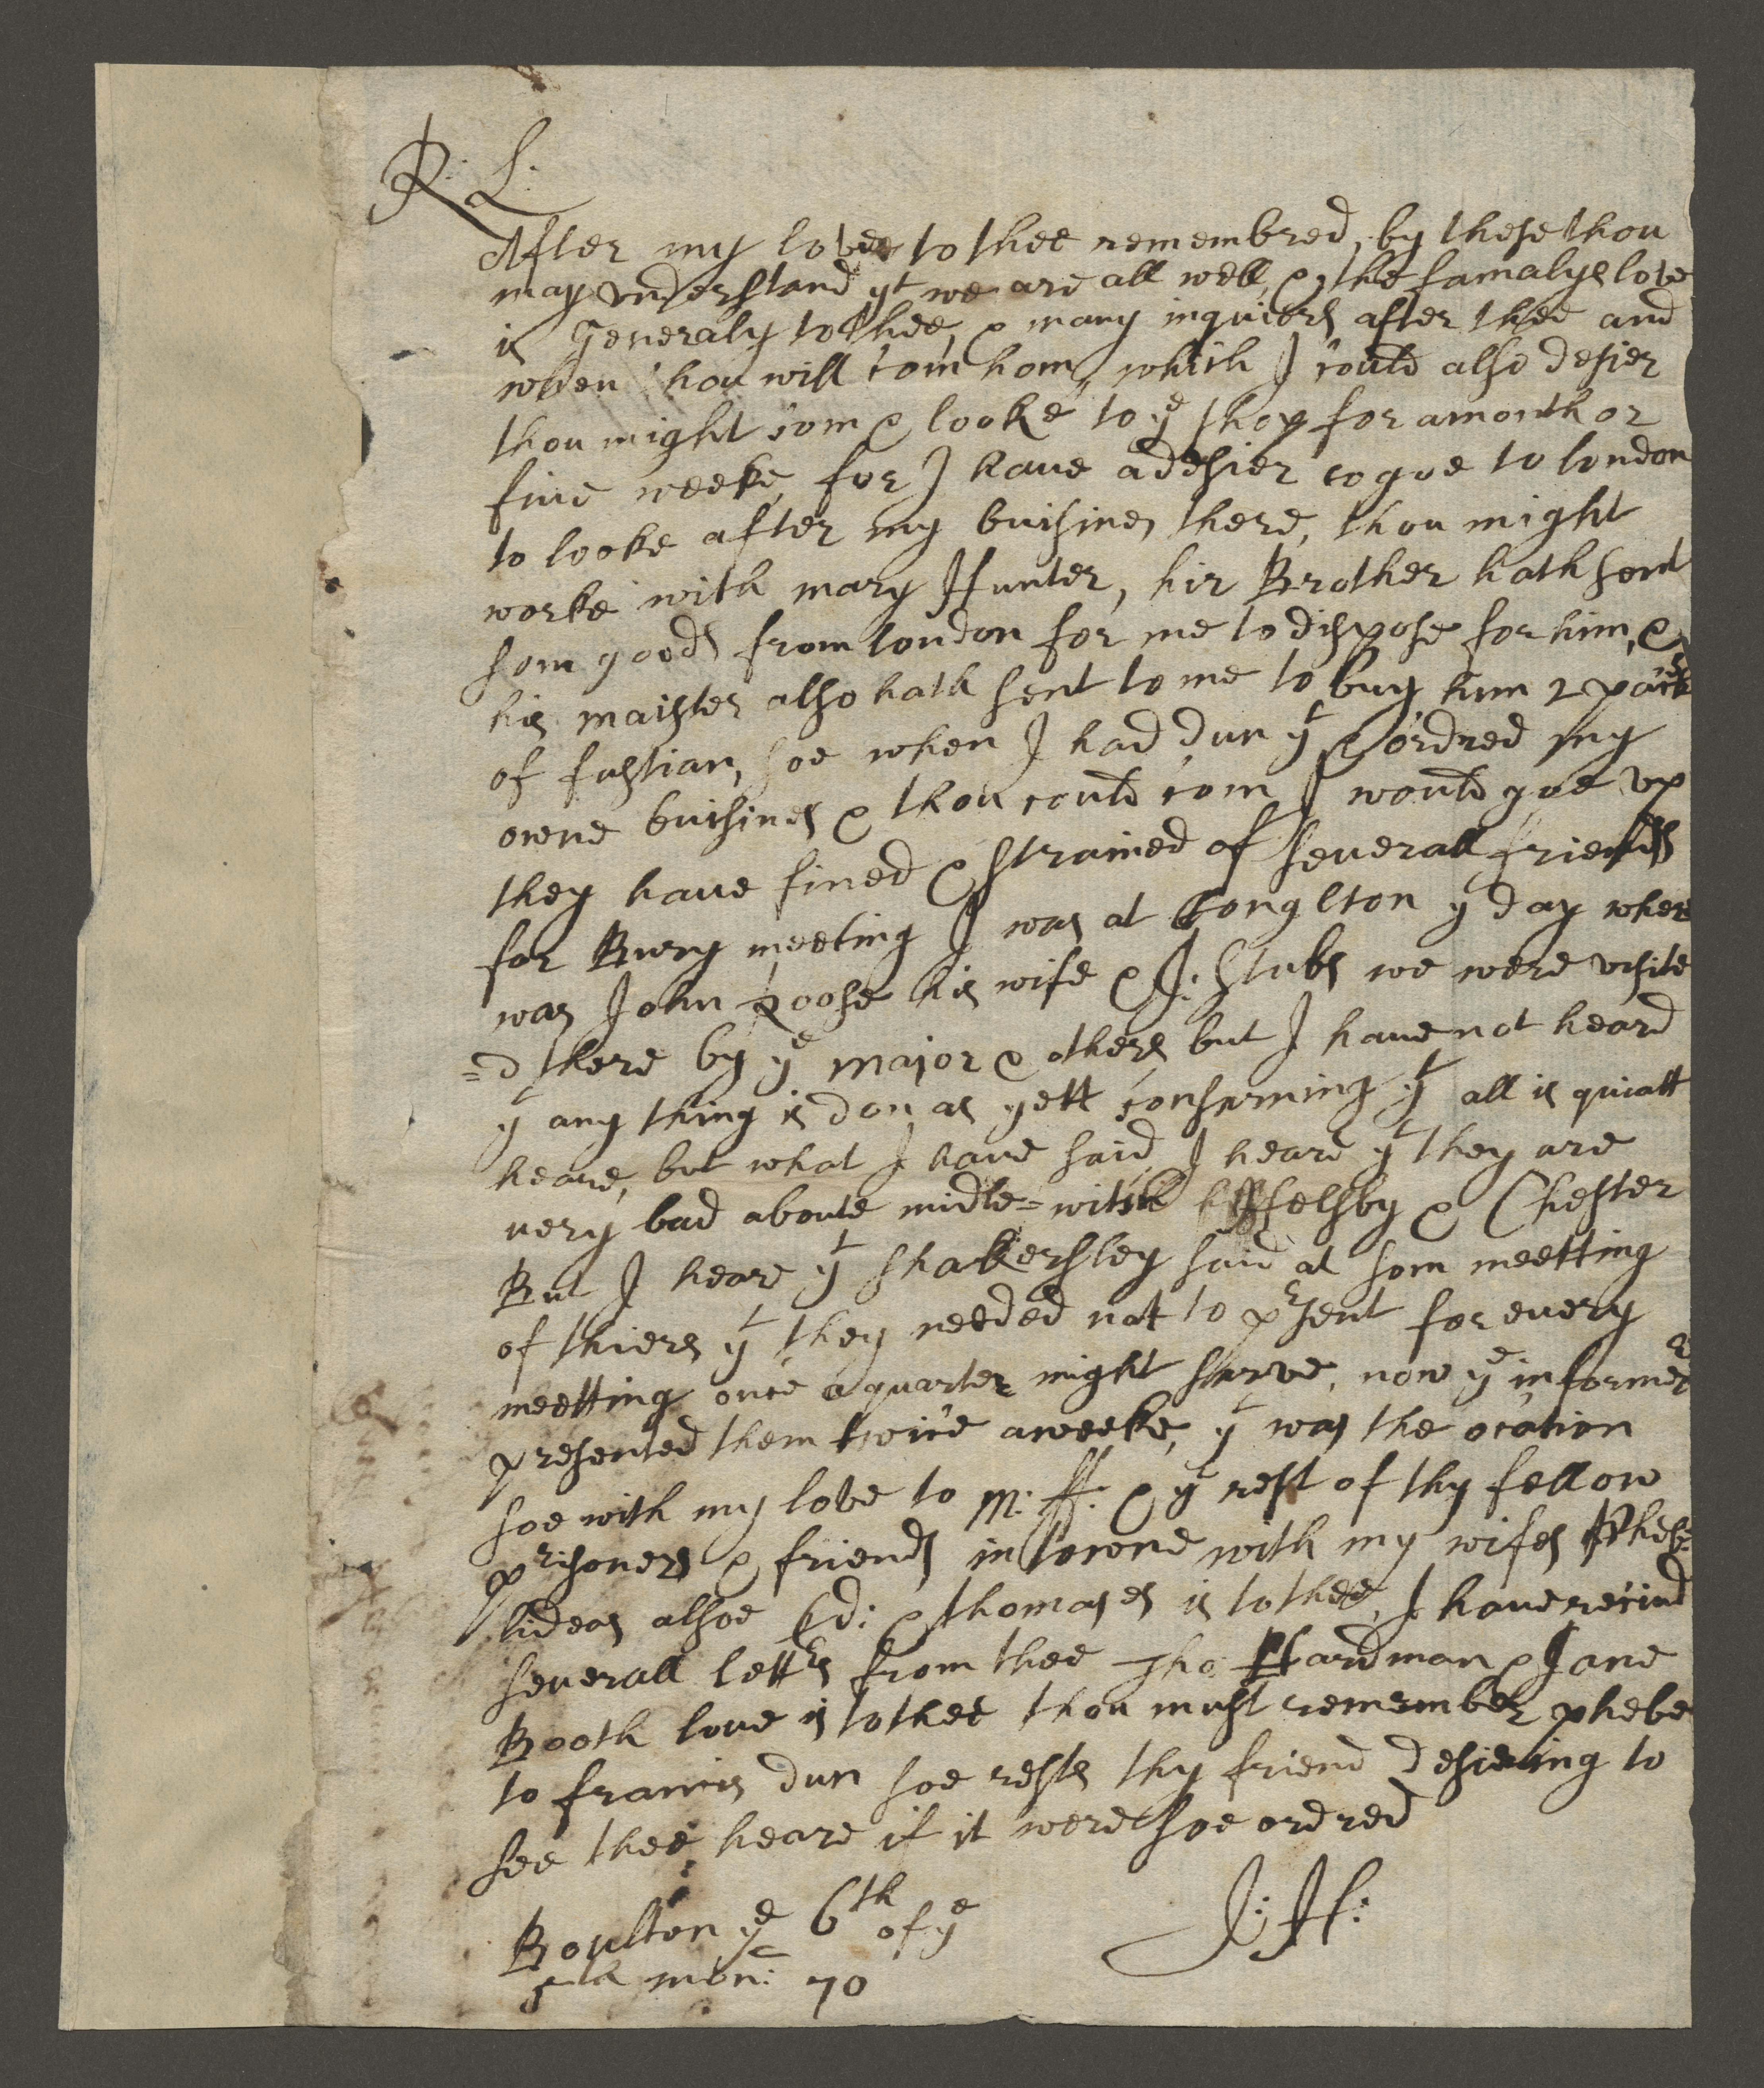 R: L:
After my love to thee remembred, by these thou
may understand yt we are all well, & the famalys love
is Generaly to thee, & many inquiers after thee and
when thou will com hom, which I could also desier
thou might com & looke to ye shop for a month or
five weeke, for I have a desier to goe to london
to looke after my buisines there, thou might
worke with mary Hunter, hir Brother hath sent
som goods from london for me to dispose for him, &
his maister also hath sent to me to buy him 2 packs
of fustian, soe when I had dun yt & ordred my
owne buisines & thou could com I would goe up
they have fined & strained of severall friends
for Bury meeting I was at Conglton yt day where
was John poose his wife & J: Stubs we were visite
=d there by ye major & others but I have not heard
yt any thing is don as yett consarning yt all is quiatt
heare, but what I have said I heare yt they are
very bad aboute midle=witch ffelsby & Chester
But I heare yt Shakersley said at som meetting
of thiers yt they needed not to prsent for every
meetting once a quarter might sarve, now ye informer
presented them twice a weeke, yt was the ocation
soe with my love to M: ff: & ye rest of thy fellow
prisoners & friends in towne with my wifes Pheb=
lideas alsoe Ed: & thomases is to thee, I have recivd
severall lettrs from thee Tho: Hardman & Jane
Booth love is to thee thou must remember phebe
to francis dun soe rests thy friend desiering to
see thee heare if it were soe ordred
J: H:
Boulton ye 6th of ye
5th mon: 70